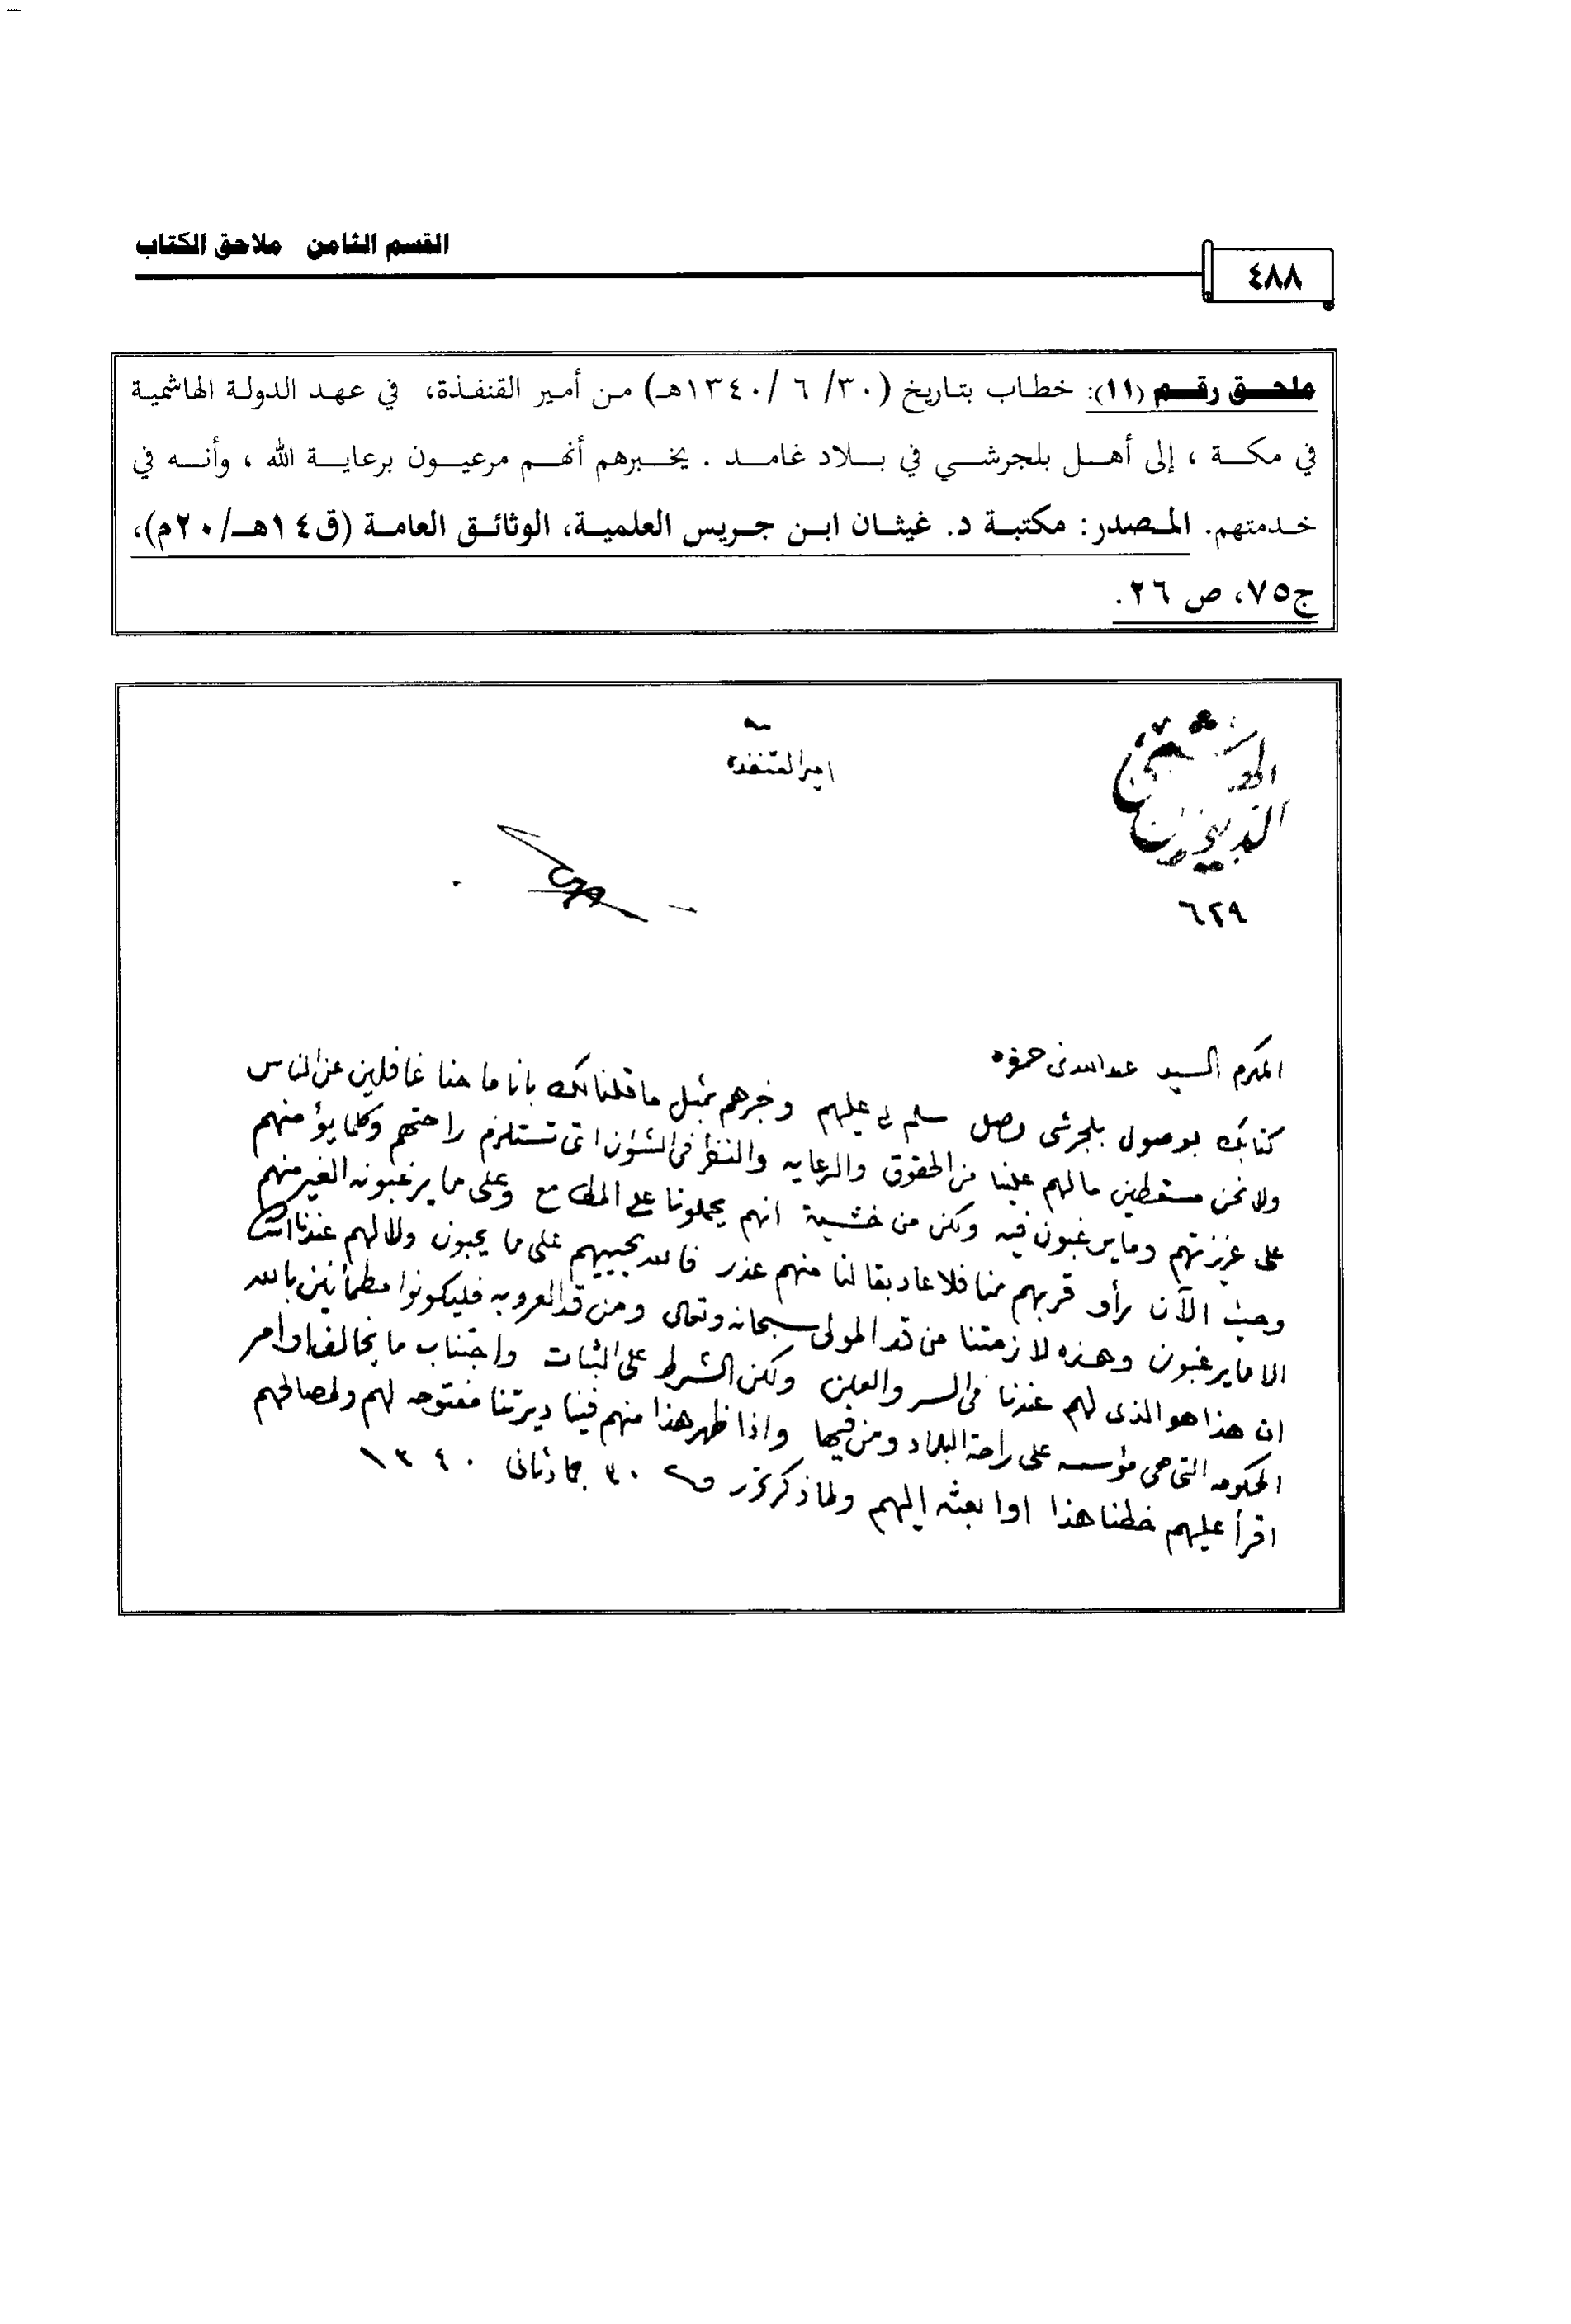 القسم الثامن ملاحق الكتاب
٤٨٨
ملحق رقم (١١): خطاب بتاريخ (٣٠/ ٦ /١٣٤٠هـ) من أمير القنفذة، في عهد الدولة الهاشمية
في مكة ، إلى أهل بلجرشي في بلاد غامد . يخبرهم أنهم مرعيون برعاية الله ، وأنه في
خدمتهم. المصدر: مكتبة د. غيثان ابن جريس العلمية، الوثائق العامة (ق١٤هـ/٢٠م)،
ج٧٥، ص ٢٦.
امير القنفذه
٦٢٩
المكرم السيد عبدالله بن حمزه
كتابك بوصول بلجرشى وصل سلم لى عليهم وخبرهم بمثل ما قلنا لك بانا ما حنا غافلين عن الناس
ولا نحن مسقطين ما لهم علينا من الحقوق والرعايه والنظر فى الشئون التى تستلزم راحتهم وكلما يؤمنهم
على عزيزتهم وما يرغبون فيه ولكن من خشية انهم يحملونا على المطامع وعلى ما يرغبونه الغير منهم
وحيث الآن رأو قربهم منا فلا عاد بقا لنا منهم عذر فالله يحييهم على ما يحبون ولا لهم عندنا
الا ما يرغبون وهذه لازمتنا من قد المولى سبحانه وتعالى ومن قد العروبه فليكونوا مطمأنين بالله
ان هذا هو الذى لهم عندنا فى السر والعلن ولكن الشرط على الثبات واجتناب ما يخالف اوامر
الحكومه التى هى مؤسسه على راحة البلاد ومن فيها واذا ظهر هذا منهم فينا ديرتنا مفتوحه لهم ولمصالحهم
اقرأ عليهم خطنا هذا اوا بعثه إليهم ولما ذكر تحرر ٣٠ جمادثانى ١٣٤٠